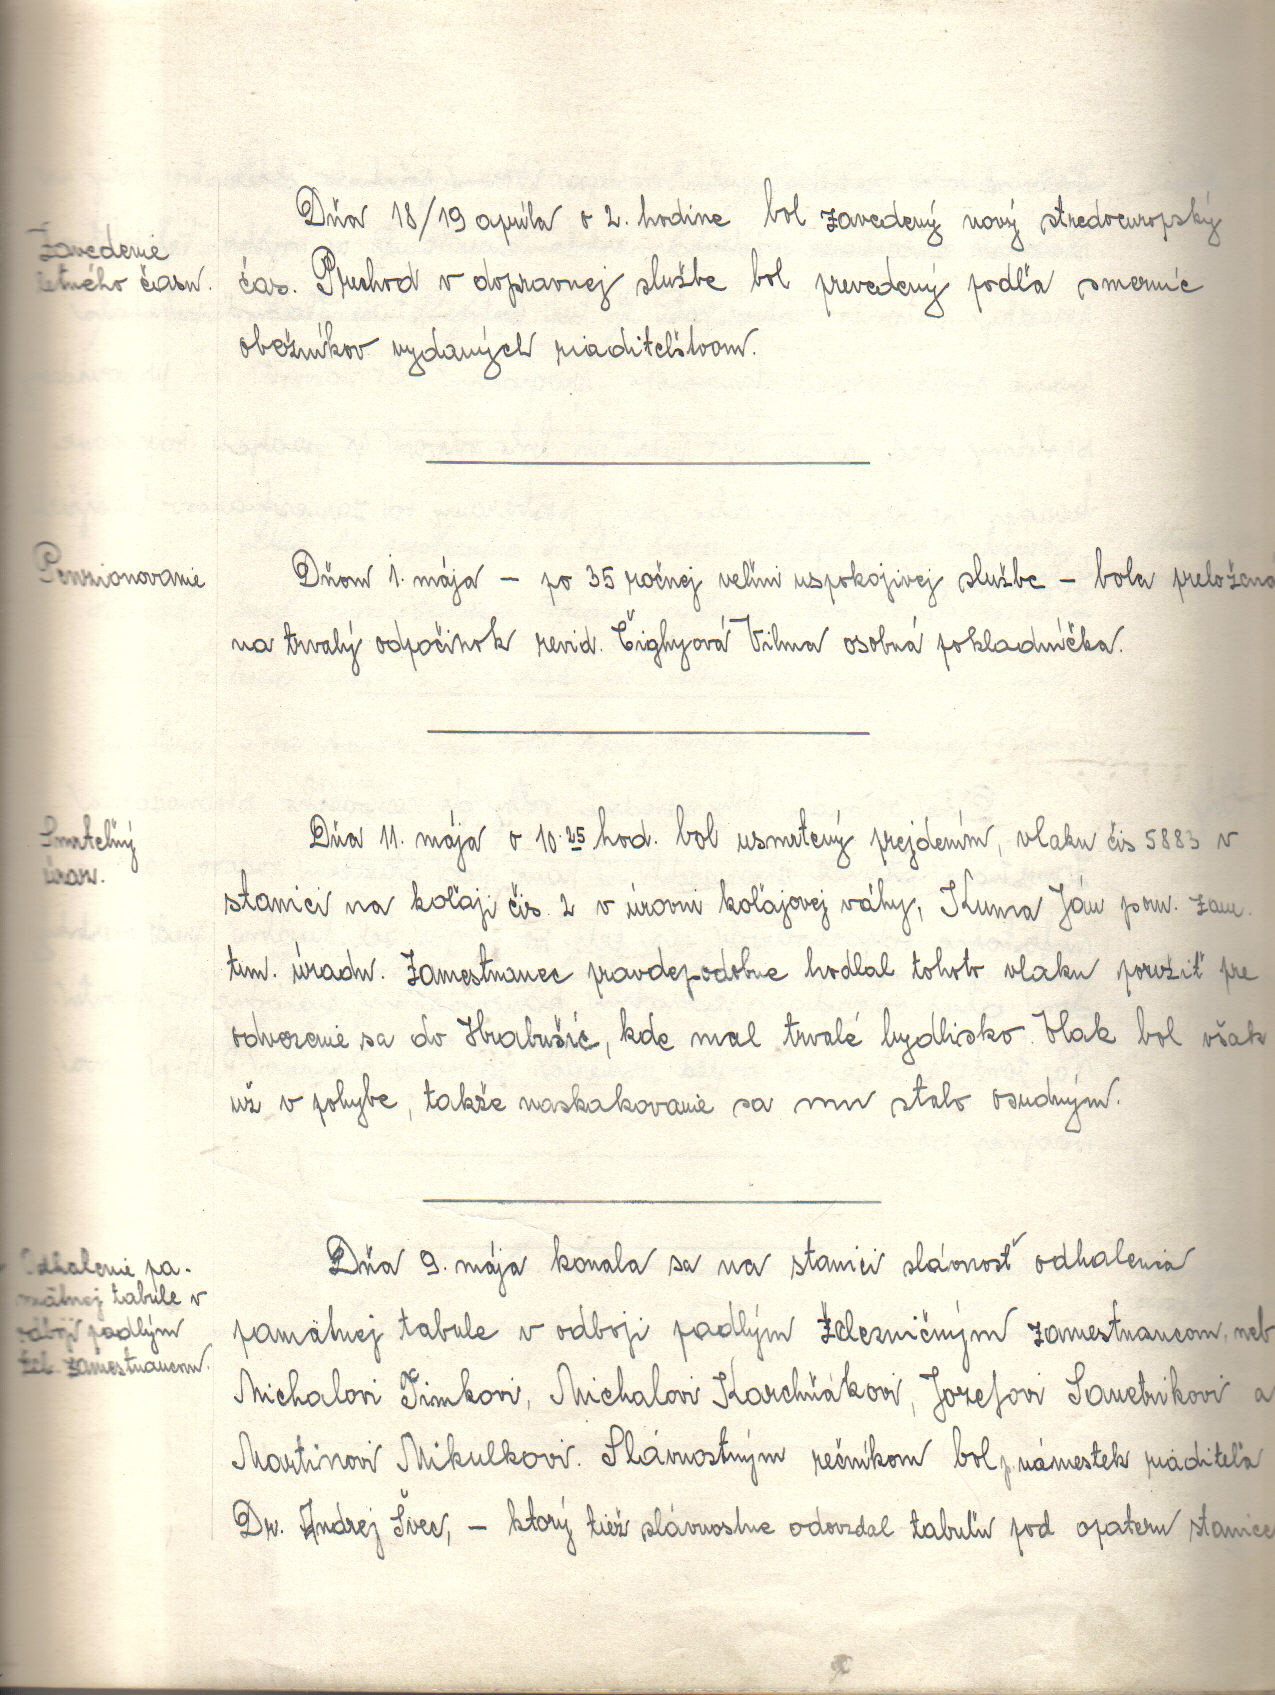 Zavedenie
letného času.
Dňa 18/19 apríla o 2. hodine bol zavedený nový stredoeuropský
čas. Prechod v dopravnej službe bol prevedený podľa smerníc
obežníkov vydaných riaditeľstvom.
Penzionovanie
Dňom 1. mája – po 35 ročnej veľmi uspokojivej službe – bola preložená
na trvalý odpočinok revid. Čighyová Vilma osobná pokladníčka.
Smrteľný
úraz.
Dňa 11. mája o 10.25 hod. bol usmrtený prejdením, vlaku čis 5883 v
stanici na koľaji čis. 2 v úrovni koľajovej váhy, Kuma Ján pom. zam.
tım. úradu. Zamestnanec pravdepodobne hodlal tohoto vlaku použiť pre
odvezenie sa do Hrabušíc, kde mal trvalé bydlisko. Vlak bol však
už v pohybe, takže naskakovanie sa mu stalo osudným.
Odhalenie pa-
mätnej tabule v
odboji padlým
žel. zamestnancom.
Dňa 9. mája konala sa na stanici slávnosť odhalenia
pamätnej tabule v odboji padlým železničným zamestnancom, neb
Michalovi Timkovi, Michalovi Karchňákovi, Jozefovi Sametnikovi a
Martinovi Mikulkovi. Slávnostným rečníkom bol p. námestek riaditeľa
Dr. Andrej Švec, – ktorý tiež slávnostne odovzdal tabuľu pod opateru stanice